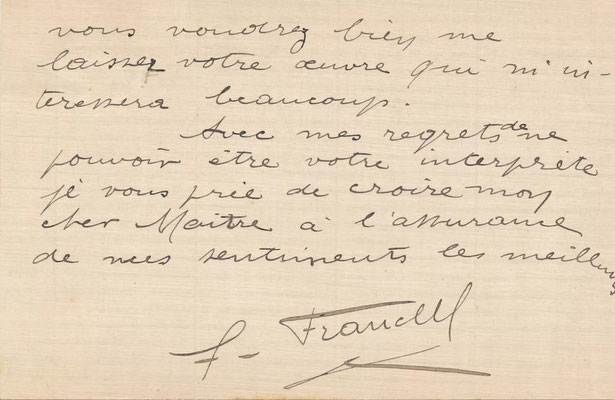 vous voudrez bien me
laisser votre œuvre qui m'in-
teressera beaucoup.
Avec mes regrets de ne
pouvoir être votre interprète
je vous prie de croire mon
cher Maitre à l'assurance
de mes sentiments les meilleurs
F.